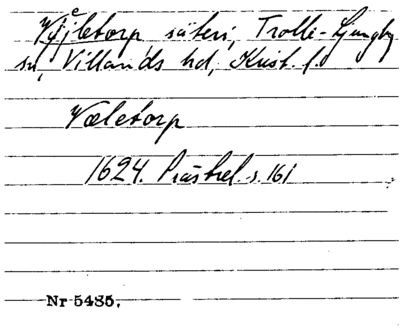 Vejletorp säteri, Trolle-Ljungby
sn, Villands hd, Krist. l.
Væletorp
1624. Prästrel. s. 161
Nr 5485.